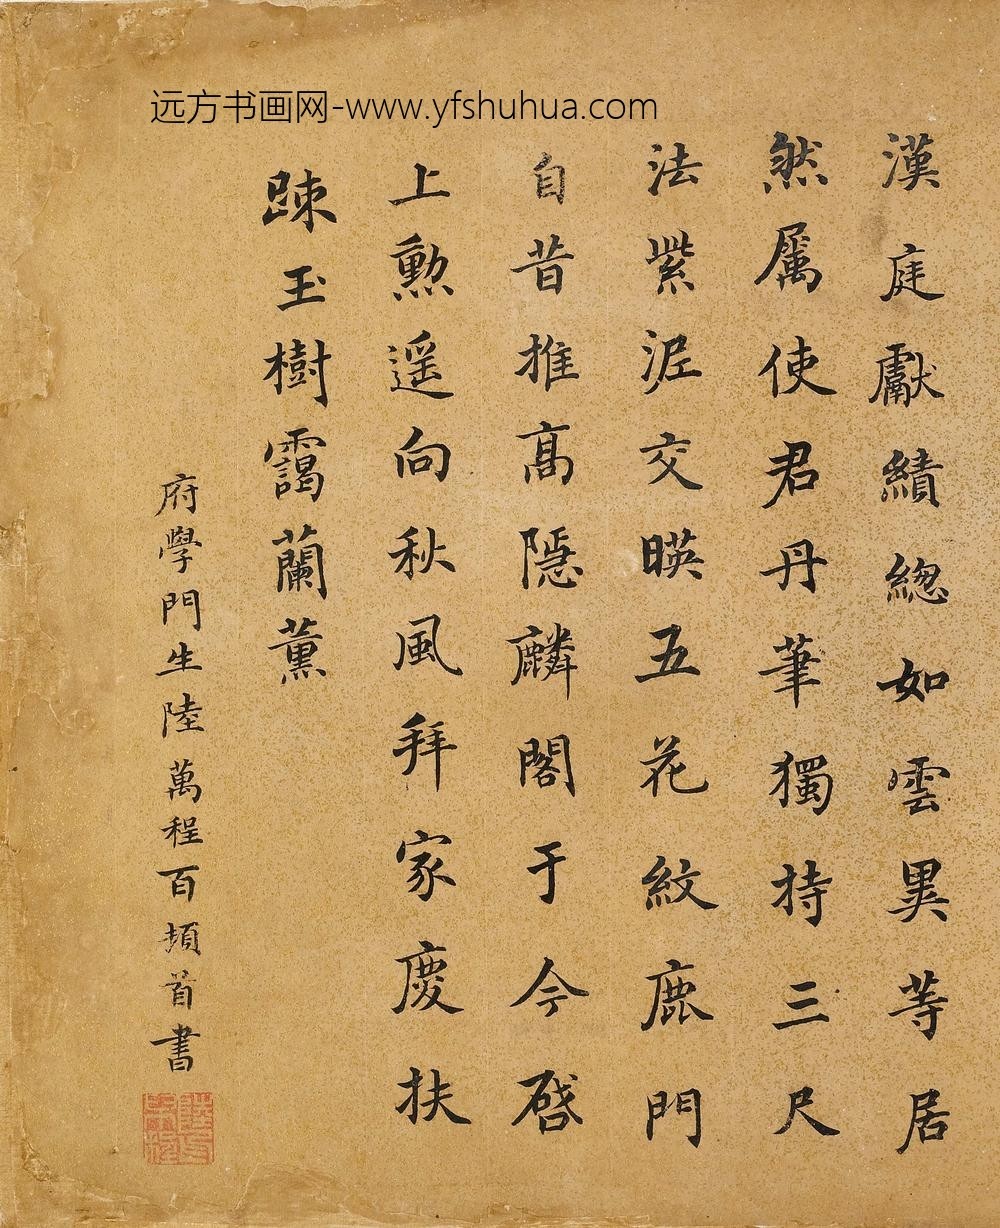 远方书画网-www.yfshuhua.com
漢庭獻績總如雲異等居
然属使君丹筆獨持三尺
法紫泥交暎五花紋鹿門
自昔推髙隱麟閣于今啓
上勲遥向秋風拜家慶扶
踈玉樹靄蘭薰
府學門生陸萬程百頓首書